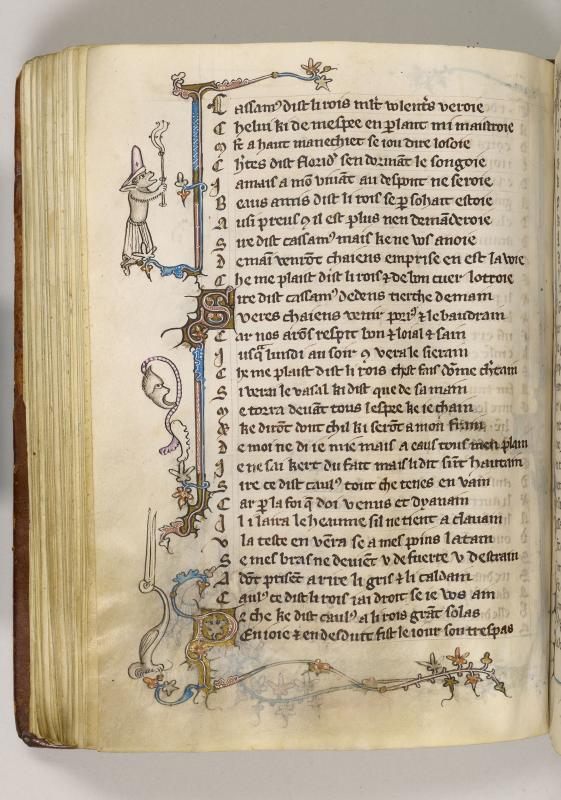 C assam9 dist li rois
C helui ki de mespee en plant mi maistroie
se iou dire losoie
C h'tes dist florid9 sen dormāt le songoie
J amais a mō viuāt au despoit ne seroie
B eaus amis dist li rois se p sohait estoie
A usi preus 9 il est plus nen demāderoie
S ire dist cassam9 mais ke ne vos anoie
D emain venrōt chaiens emprise en est la voie
C he me plaist dist li rois ⁊ de bon cuer lotroie
S ire dist cassam9 dedens tierche demain
V eres chaiens venir por9 ⁊ le baudrain
C ar nos arōs respit bon ⁊ loial ⁊ sain
J usqa lundi au soir 9 vera le serain
C he me plaist dist li rois
S i verai le vasal ki dist que de sa main
M e torra deuāt tous lespee ke ie chain
ke dirōt dont chil ki serōt a mon frain
D e moi ne di ie mie mais a eaus tous men plain
J e ne sai kert du fait mais li dit sūt hautain
S ire ce dist caul9 tout che tenes en vain
C ar p la foi q doi venus et dyanain
J l i laira le heaume sil ne tient a clauain
V la teste en vēra se a mes poins latain
S e mes bras ne deuiēt v de fuerre v destrain
A dōt prisēt a rire li gris ⁊ li caldain
C aul9 ce dist li rois iai droit se ie vos am
che ke dist caul9 a li rois grāt solas
E n ioie ⁊ en desduit fist le iour son trespas